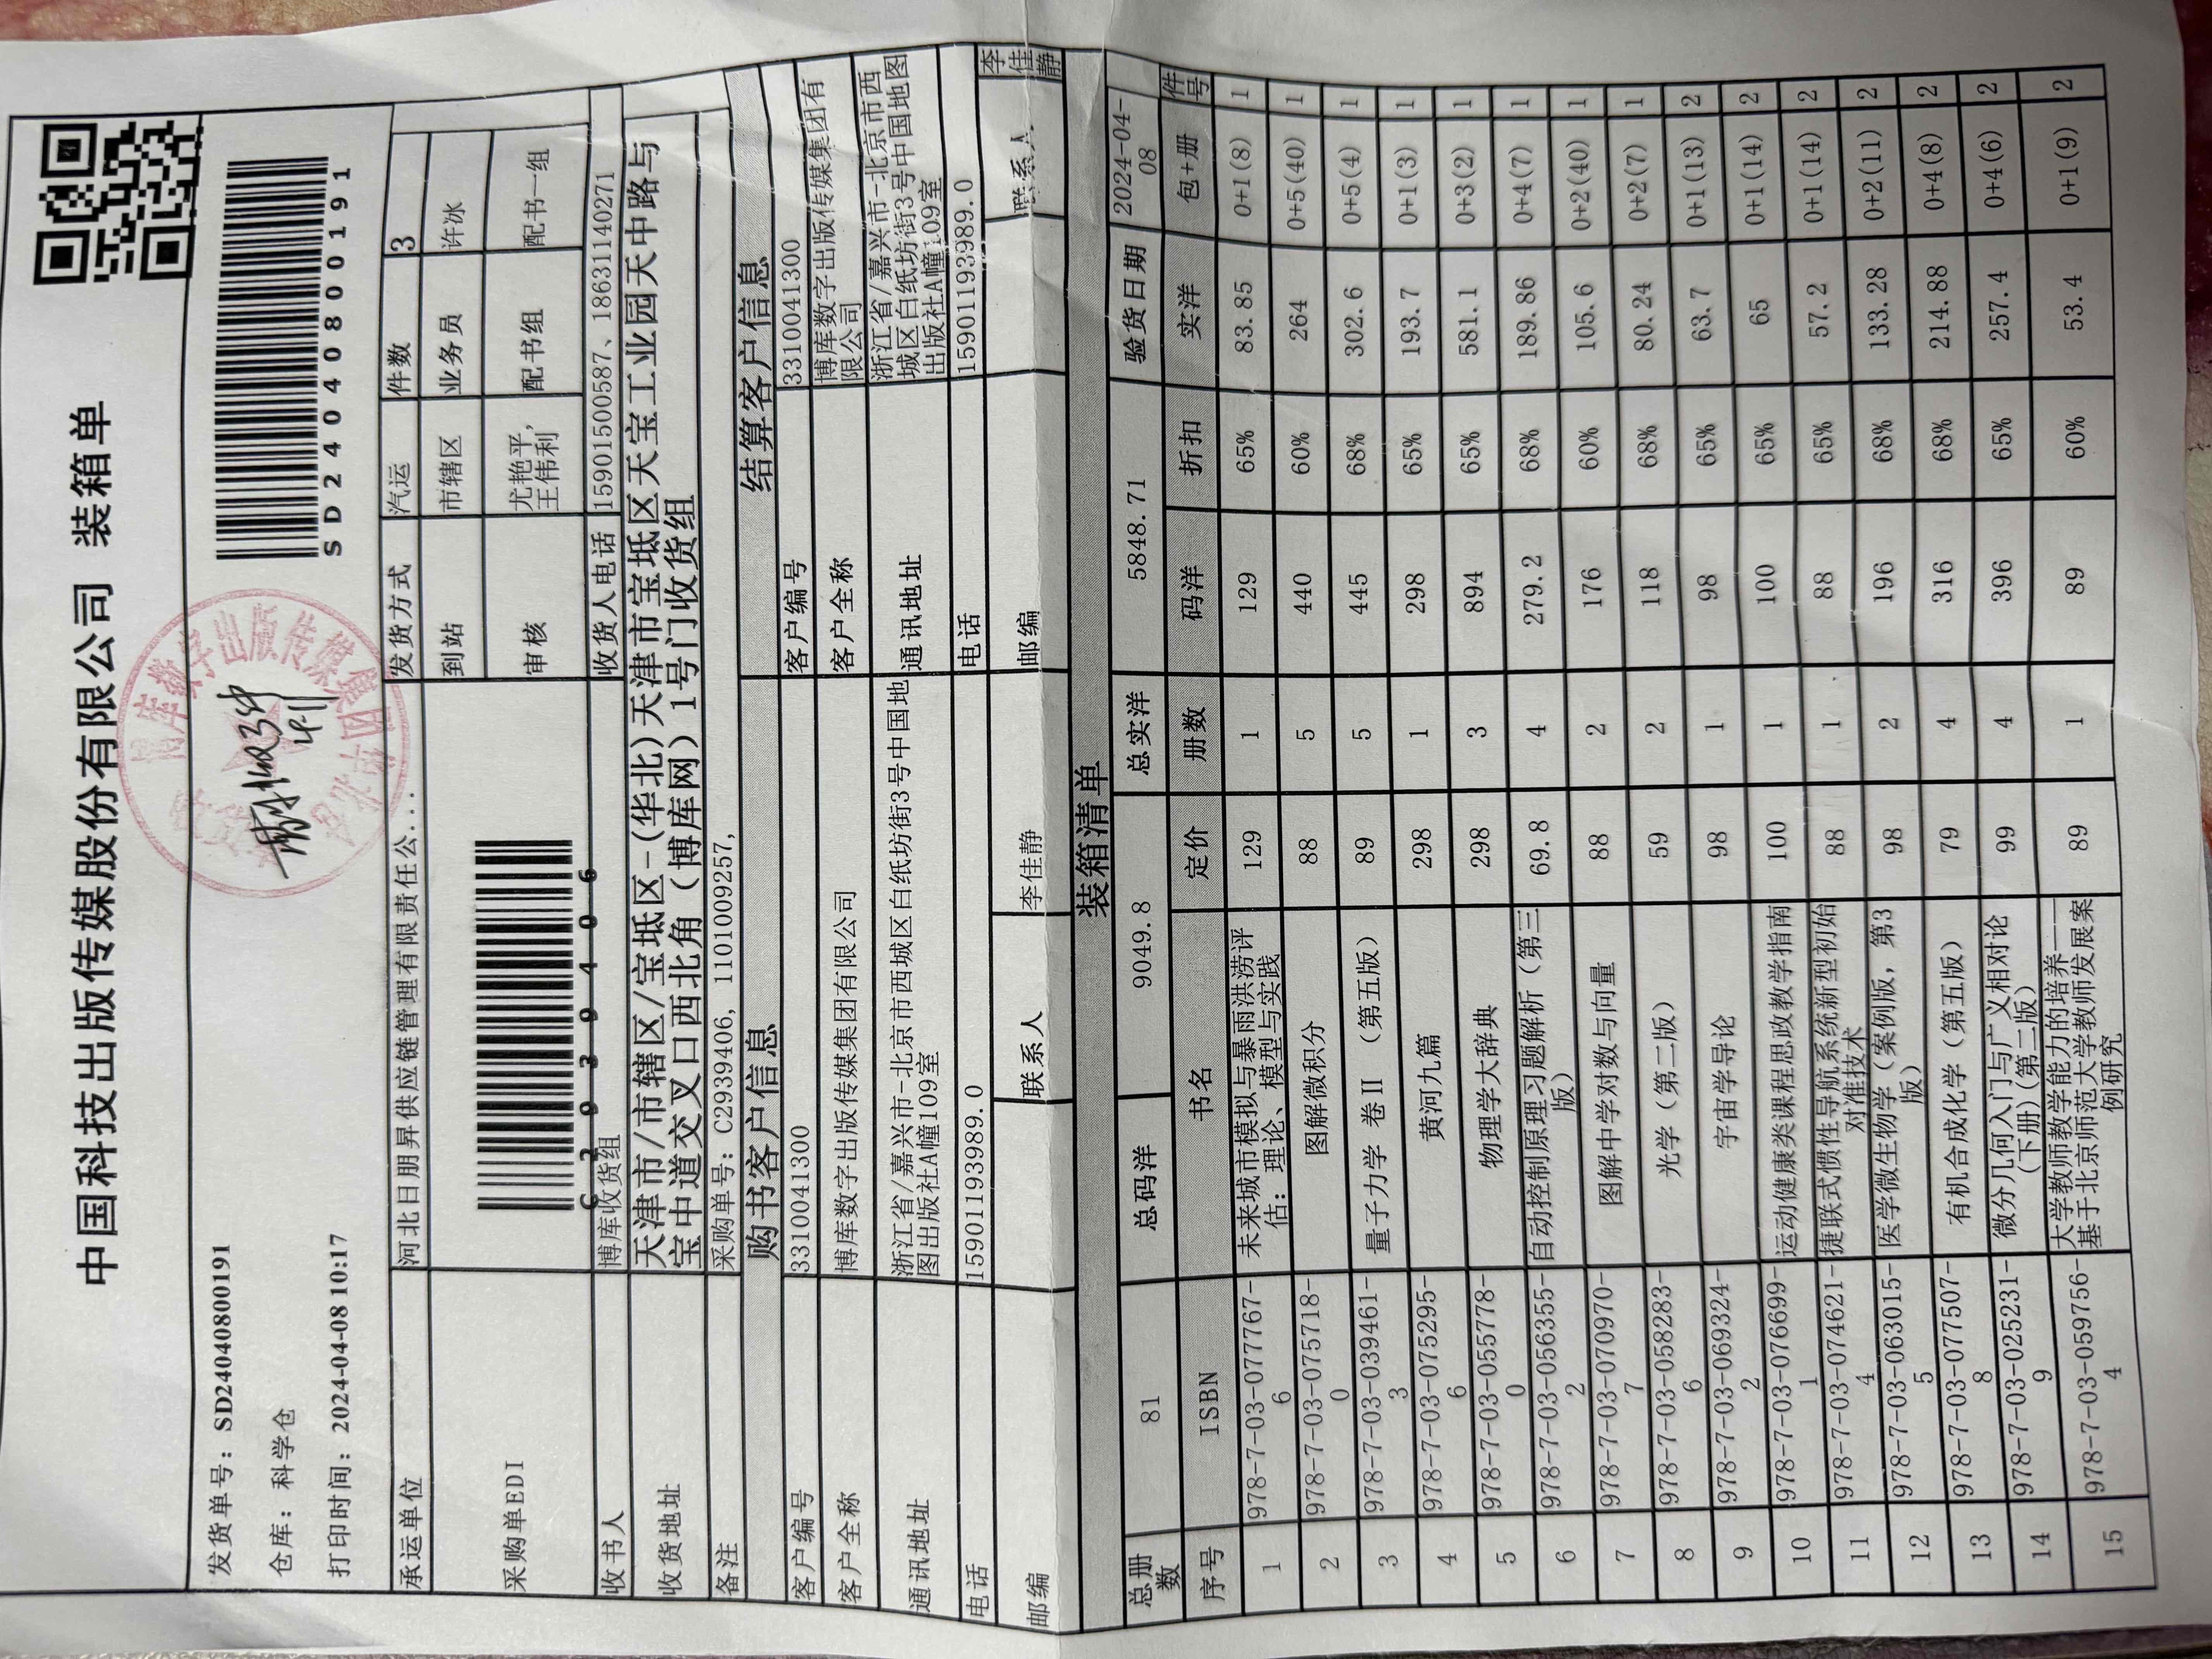 中国科技出版传媒股份有限公司 装箱单
发货单号：SD2404080019​1
仓库：科学仓
打印时间：2024-04-08 10:17
SD24040800191
承运单位 河北日朋昇供应链管理有限责任公... 发货方式 汽运 件数 3
采购单EDI C2939406 到站 市辖区 业务员 许冰
审核 尤艳平，王伟利 配书组 配书一组
收书人 博库收货组 收货人电话 15901500587、18631140271
收货地址 天津市/市辖区/宝坻区-(华北)天津市宝坻区天宝工业园天中路与
宝中道交叉口西北角（博库网）1号门收货组
备注 采购单号：C2939406, 1101009257,
购书客户信息 结算客户信息
客户编号 3310041300 客户编号 3310041300
客户全称 博库数字出版传媒集团有限公司 客户全称 博库数字出版传媒集团有
限公司
通讯地址 浙江省/嘉兴市-北京市西城区白纸坊街3号中国地
图出版社A幢109室 通讯地址 浙江省/嘉兴市-北京市市西
城区白纸坊街3号中国地图
出版社A幢109室
电话 15901193989.0 电话 15901193989.0
邮编 联系人 李佳静 邮编 联系人 李佳静
装箱清单
总册数 81 总码洋 9049.8 总实洋 5848.71 验货日期 2024-04-08
序号 ISBN 书名 定价 册数 码洋 折扣 实洋 包+册 件号
1 978-7-03-077767-6 未来城市模拟与暴雨洪涝评估：理论、模型与实践 129 1 129 65% 83.85 0+1(8) 1
2 978-7-03-075718-0 图解微积分 88 5 440 60% 264 0+5(40) 1
3 978-7-03-039461-3 量子力学 卷II （第五版） 89 5 445 68% 302.6 0+5(4) 1
4 978-7-03-075295-6 黄河九篇 298 1 298 65% 193.7 0+1(3) 1
5 978-7-03-055778-0 物理学大辞典 298 3 894 65% 581.1 0+3(2) 1
6 978-7-03-056355-2 自动控制原理习题解析（第三版） 69.8 4 279.2 68% 189.86 0+4(7) 1
7 978-7-03-070970-7 图解中学对数与向量 88 2 176 60% 105.6 0+2(40) 1
8 978-7-03-058283-6 光学（第二版） 59 2 118 68% 80.24 0+2(7) 1
9 978-7-03-069324-2 宇宙学导论 98 1 98 65% 63.7 0+1(13) 2
10 978-7-03-076699-1 运动健康类课程思政教学指南 100 1 100 65% 65 0+1(14) 2
11 978-7-03-074621-4 捷联式惯性导航系统新型初始对准技术 88 1 88 65% 57.2 0+1(14) 2
12 978-7-03-063015-5 医学微生物学（案例版，第3版） 98 2 196 68% 133.28 0+2(11) 2
13 978-7-03-077507-8 有机合成化学（第五版） 79 4 316 68% 214.88 0+4(8) 2
14 978-7-03-025231-9 微分几何入门与广义相对论（下册）（第二版） 99 4 396 65% 257.4 0+4(6) 2
15 978-7-03-059756-4 大学教师教学能力的培养——基于北京师范大学教师发展案例研究 89 1 89 60% 53.4 0+1(9) 2